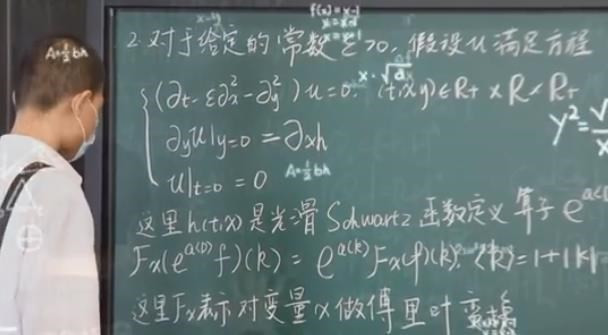 2. 对于给定的常数 ε>0, 假设 u 满足方程
(∂t - ε∂x² - ∂y²) u = 0, (t,x,y) ∈ R+ × R × R+
∂yu|y=0 = ∂xh
u|t=0 = 0
这里 h(t,x) 是光滑 Schwartz 函数定义 算子 e^a<
Fx(e^a⟨D⟩ f)(k) = e^a⟨k⟩ Fx(f)(k), ⟨k⟩ = 1+|k|
这里 Fx 表示对变量 x 做傅里叶变换
A=½bh
A=½bh
x·√a
y²=√